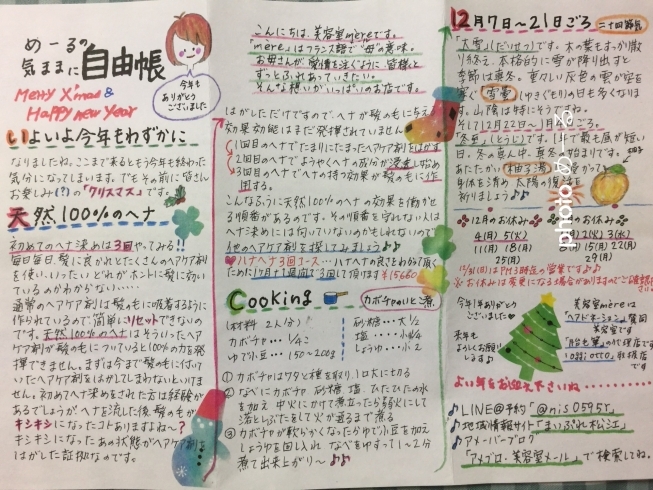 めーるの
気ままに自由帳
Merry X'mas &
Happy new year
今年も
ありがとう
ございました
いよいよ今年もわずかに
なりましたね。ここまで来るともう今年も終わった
気分になってしまいます。でもその前に皆さん
お楽しみ(?)の「クリスマス」です。
天然100%のヘナ
初めてのヘナ染めは3回やってみる!!
毎日毎日、髪に良かれとたくさんのヘアケア剤
を使い、いったいどれがホントに髪に効い
ているのかわからない……
通常のヘアケア剤は髪の毛に吸着するように
作られているので簡単にリセットできないの
です。天然100%のヘナはそういったヘア
ケア剤が髪の毛についていると100%の力を発
揮できません。まずは今まで髪の毛に付い
ていたヘアケア剤をはがしてしまわないといけま
せん。初めてヘナ染めをされた方は経験が
あるでしょうがヘナを流した後、髪の毛が
キシキシになったコトありますよね～?
キシキシになったあの状態がヘアケア剤を
はがした証拠なのです。
こんにちは、美容室mèreです。
「mère」はフランス語で"母"の意味。
お母さんが愛情を注ぐように皆様と
ずっとふれあっていきたい。
そんな想いがいっぱいのお店です。
はがしただけですので、ヘナが髪の毛に与える
効果効能はまだ発揮されていません
1回目のヘナでたまりにたまったヘアケア剤をはがす
2回目のヘナでようやくヘナの成分が浸透し始め
3回目のヘナでヘナの持つ効果が髪の毛に作
用する。
こんなふうに天然100%のヘナの効果を働かせ
る順番があるのです。その順番を守れない人は
ヘナ染めには向いていないのかもしれないので
他のヘアケア剤を探してみましょう♪♪
ハナヘナ3回コース…ハナヘナの良さをわかって頂く
ために1ケ月+1週間で3回して頂きます¥15660
Cooking
カボチャのいとこ煮
(材料 2人分)
カボチャ……1/4こ
ゆで小豆……150～200g
砂糖……大1/2
塩……小1/4
しょうゆ……小2
① カボチャはワタと種を取り、1口大に切る
② なべにカボチャ 砂糖 塩、ひたひたの水
を加え 中火にかけて煮立ったら弱火にして
落とぶたをして火が通るまで煮る
③ カボチャが軟らかくなったらゆで小豆を加え
しょうゆを回し入れ なべをゆすって1～2分
煮て出来上がり～♪♪
12月7日～21日ごろ 二十四節気
「大雪」(だいせつ)です。木の葉もすっかり散
り終え、本格的に雪が降り出すと
季節は真冬。重々しい灰色の雲が空を
塞ぐ 雪雲(ゆきぐも)の日も多くなりま
す。山陰は特にそうですね。
そして12月22日～1月 ごろ
「冬至」(とうじ)です。1年で最も昼が短い
日。冬の真ん中、真冬の始まりです。
あたたかい「柚子湯」に浸かって
身体を清め、太陽の復活を
祈りましょう♪♪
12月のお休み
4(月) 5(火)
11(月) 18(月)
25(月)
のお休み
1(月) 2(火) 3(水)
8(月) 15(月) 22(月)
29(月)
12/31(日)はPM3時迄の営業です♪♪
※お休みは変更になる場合がありますのでご確認下さい
今年1年ありがとう
ございました♥
来年も
よろしくお願い
します♪
美容室mèreは
"ヘアドネーション"賛同
美容室です
「胎毛筆」の代理店です
「oggi otto」取扱店
です
よい年をお迎え下さいね………
♪LINE@予約「@nis0595r」
♪地域情報サイト「まいぷれ松江」
♪アメーバーブログ
「アメブロ・美容室メール」で検索してね。
photo めーる